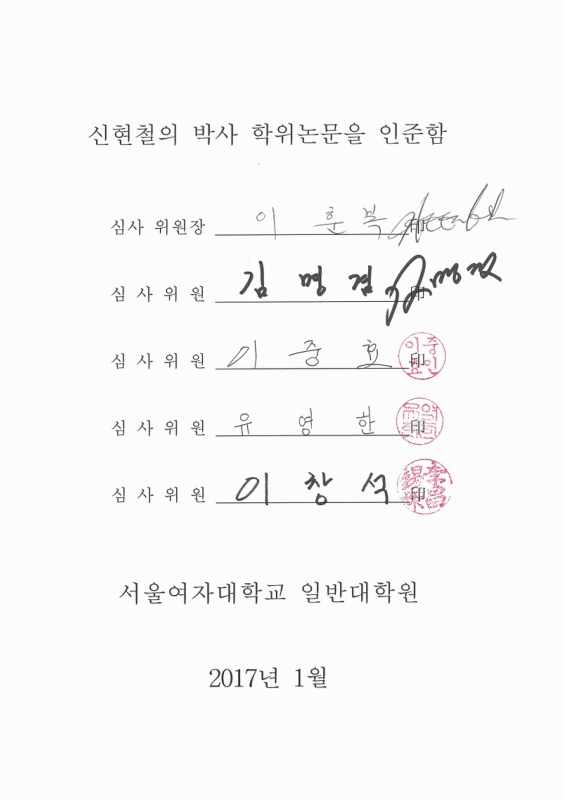 신현철의 박사 학위논문을 인준함
심사 위원장 이 훈 복 印
심 사 위 원 김 명 겸 印
심 사 위 원 이 중 효 印
심 사 위 원 유 영 한 印
심 사 위 원 이 창 석 印
서울여자대학교 일반대학원
2017년 1월